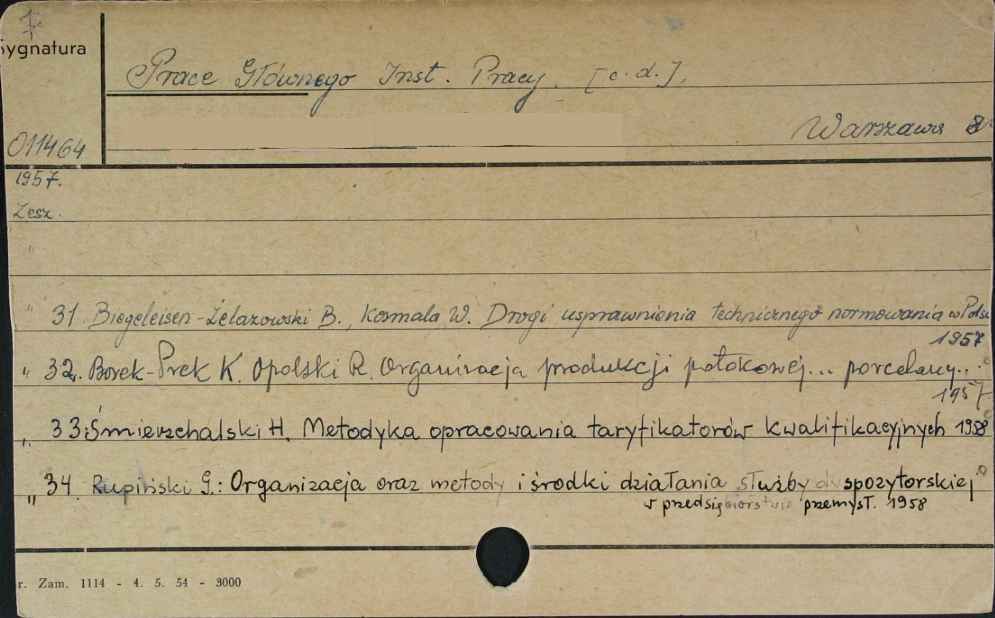 Sygnatura
Prace Głównego Inst. Pracy. [c. d.].
Warszawa
011464
1957.
Zesz.
"
" 31. Biegeleisen-Żelazowski B., Kosmala W. Drogi usprawnienia technicznego normowania w Polsce
1957
" 32. Borek-Prek K. Opolski R. Organizacja produkcji potokowej... porcelany...
1957
" 33. Śmierzchalski H. Metodyka opracowania taryfikatorów kwalifikacyjnych 1958
" 34. Rupiński G.: Organizacja oraz metody i środki działania służby dyspozytorskiej
w przedsiębiorstwie przemysł. 1958
r. Zam. 1114 - 4. 5. 54 - 3000